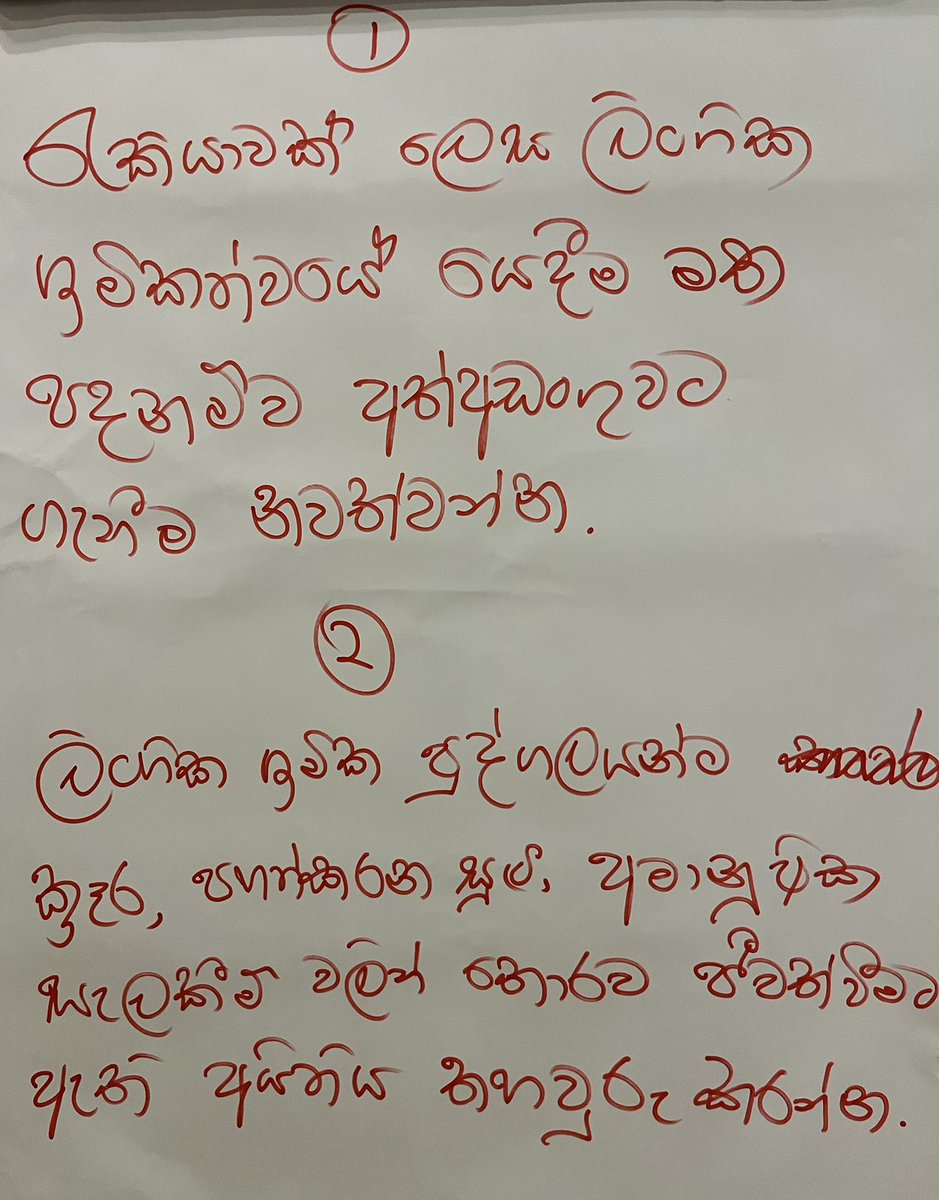 1
රැකියාවක් ලෙස ලිංගික
ශ්‍රමිකත්වයේ යෙදීම මත
පදනම්ව අත්අඩංගුවට
ගැනීම නවත්වන්න.
2
ලිංගික ශ්‍රමික පුද්ගලයන්ට
ක්‍රෑර, පහත්කරන සුලු, අමානුෂික
සැලකීම් වලින් තොරව ජීවත්වීමට
ඇති අයිතිය තහවුරු කරන්න.